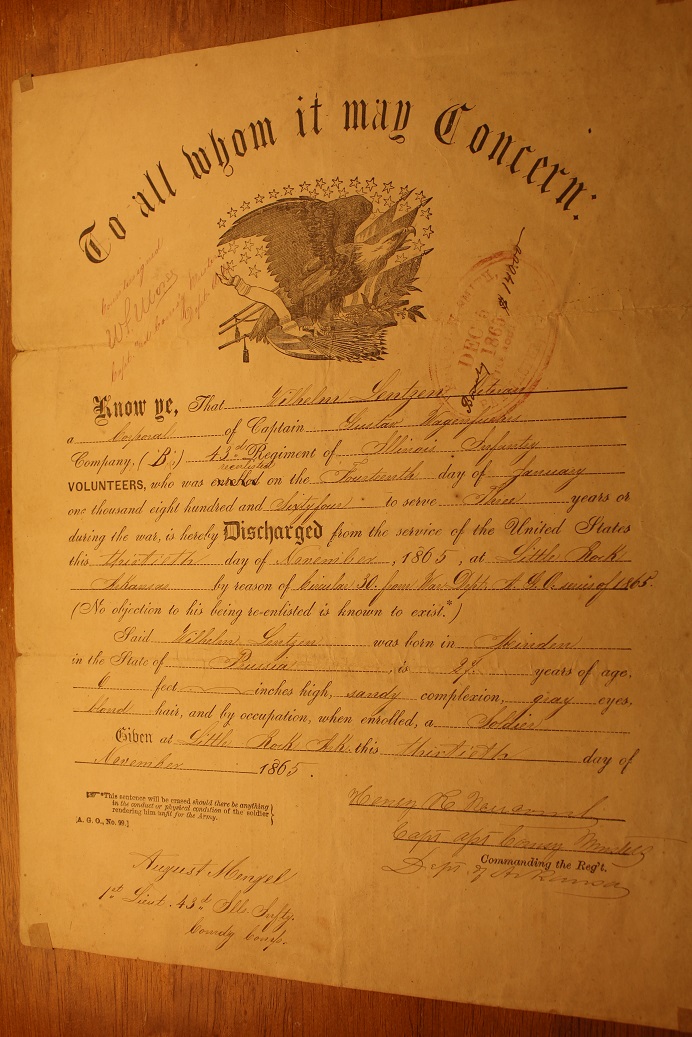 To all whom it may Concern:
DEC 5
1865
Know ye, That Wilhelm Lentzen
a Corporal of Captain Gustav
Company, (B,) 43d Regiment of Illinois Infantry
reenlisted
VOLUNTEERS, who was enrolled on the Fourteenth day of January
one thousand eight hundred and Sixtyfour to serve Three years or
during the war, is hereby Discharged from the service of the United States
this thirtieth day of November, 1865, at Little Rock
Arkansas by reason of Circular 30. from War Dept. A. G. O. series of 1865.
(No objection to his being re-enlisted is known to exist.*)
Said Wilhelm Lentzen was born in
in the State of Prussia, is 29 years of age,
6 feet inches high, sandy complexion, gray eyes,
blond hair, and by occupation, when enrolled, a Soldier
Given at Little Rock Ark. this thirtieth day of
November 1865.
*This sentence will be erased should there be anything
in the conduct or physical condition of the soldier
rendering him unfit for the Army.
[A. G. O., No. 99.]
Henry R
Capt
Commanding the Reg't.
Dept. of Arkansas
August Mengel
1st Lieut. 43d Ills. Infty.
Comdg Comp.